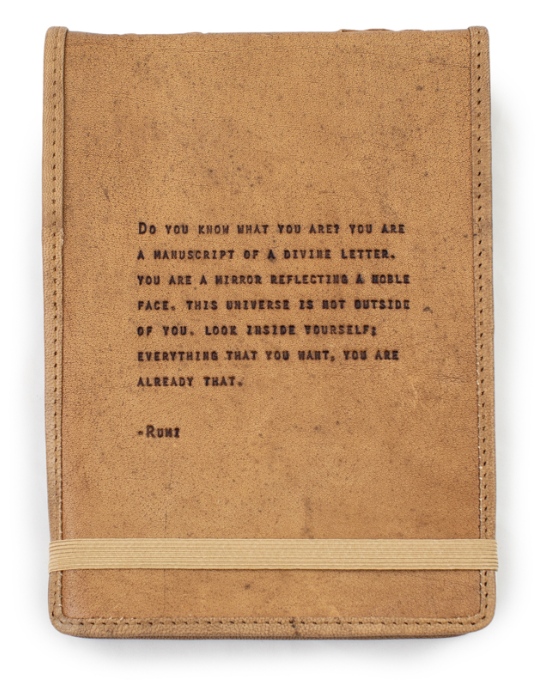 Do you know what you are? you are
a manuscript of a divine letter.
you are a mirror reflecting a noble
face. this universe is not outside
of you. look inside yourself;
everything that you want, you are
already that.
-Rumi